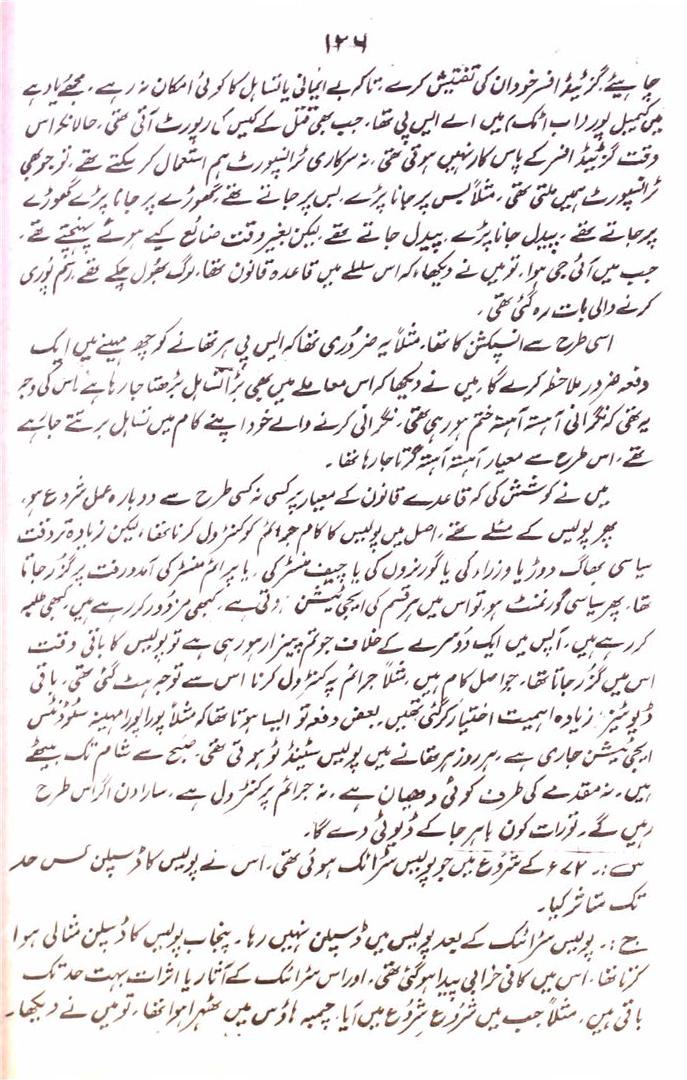 ۱۲۶
چاہیئے، گزیٹڈ افسر خود ان کی تفتیش کرے، تاکہ بے ایمانی یا تساہل کا کوئی امکان نہ رہے۔ مجھے یاد ہے
میں کیمبل پور (اب اٹک) میں اے ایس پی تھا۔ جب بھی قتل کے کیس کی رپورٹ آتی تھی، حالانکہ اس
وقت گزیٹڈ افسر کے پاس کار نہیں ہوتی تھی، نہ سرکاری ٹرانسپورٹ ہم استعمال کر سکتے تھے، تو جو بھی
ٹرانسپورٹ ہمیں ملتی تھی، مثلاً بس پر جانا پڑے، بس پر جاتے تھے، گھوڑے پر جانا پڑے گھوڑے
پر جاتے تھے، پیدل جانا پڑے، پیدل جاتے تھے، لیکن بغیر وقت ضائع کیے ہوئے پہنچتے تھے۔
جب میں آئی جی ہوا، تو میں نے دیکھا، کہ اس سلسلے میں قاعدہ قانون تھا، لوگ بھول چکے تھے، رسم پوری
کرنے والی بات رہ گئی تھی۔
اسی طرح سے انسپکشن کا تھا، مثلاً یہ ضروری تھا کہ ایس پی ہر تھانے کو چھ مہینے میں ایک
دفعہ ضرور ملاحظہ کرے گا، میں نے دیکھا کہ اس معاملے میں بھی بڑا تساہل بڑھتا جا رہا ہے، اس کی وجہ
یہ تھی کہ نگرانی آہستہ آہستہ ختم ہو رہی تھی، نگرانی کرنے والے خود اپنے کام میں تساہل برتتے جا رہے
تھے، اس طرح سے معیار آہستہ آہستہ گرتا جا رہا تھا۔
میں نے کوشش کی کہ قاعدے قانون کے معیار پر کسی نہ کسی طرح سے دوبارہ عمل شروع ہو،
پھر پولیس کے مسئلے تھے، اصل میں پولیس کا کام جرائم کو کنٹرول کرنا تھا، لیکن زیادہ تر وقت
سیاسی بھاگ دوڑ یا وزراء کی یا گورنروں کی یا چیف منسٹر کی، یا پرائم منسٹر کی آمدورفت پر گزر جاتا
تھا، پھر سیاسی گورنمنٹ ہو، تو اس میں ہر قسم کی ایجی ٹیشن ہوتی ہے، کبھی مزدور کر رہے ہیں، کبھی طلبہ
کر رہے ہیں، آپس میں ایک دوسرے کے خلاف جوتم پیزار ہو رہی ہے تو پولیس کا باقی وقت
اس میں گزر جاتا تھا، جو اصل کام ہیں، مثلاً جرائم پہ کنٹرول کرنا اس سے توجہ ہٹ گئی تھی، باقی
ڈیوٹیز زیادہ اہمیت اختیار کر گئی تھیں، بعض دفعہ تو ایسا ہوتا تھا کہ مثلاً پورا پورا مہینہ سٹوڈنٹس
ایجی ٹیشن جاری ہے، ہر روز ہر تھانے میں پولیس سٹینڈ ٹو ہوتی تھی، صبح سے شام تک بیٹھے
ہیں، نہ مقدمے کی طرف کوئی دھیان ہے، نہ جرائم پر کنٹرول ہے، سارا دن اگر اس طرح
رہیں گے، تو رات کون باہر جا کے ڈیوٹی دے گا۔
س:۔ ۷۲ء کے شروع میں جو پولیس سٹرائک ہوئی تھی، اس نے پولیس کا ڈسپلن کس حد
تک متاثر کیا۔
ج:۔ پولیس سٹرائک کے بعد پولیس میں ڈسپلن نہیں رہا۔ پنجاب پولیس کا ڈسپلن مثالی ہوا
کرتا تھا، اس میں کافی خرابی پیدا ہو گئی تھی، اور اس سٹرائک کے آثار یا اثرات بہت حد تک
باقی ہیں، مثلاً جب میں شروع شروع میں آیا، چمبہ ہاؤس میں ٹھہرا ہوا تھا، تو میں نے دیکھا۔